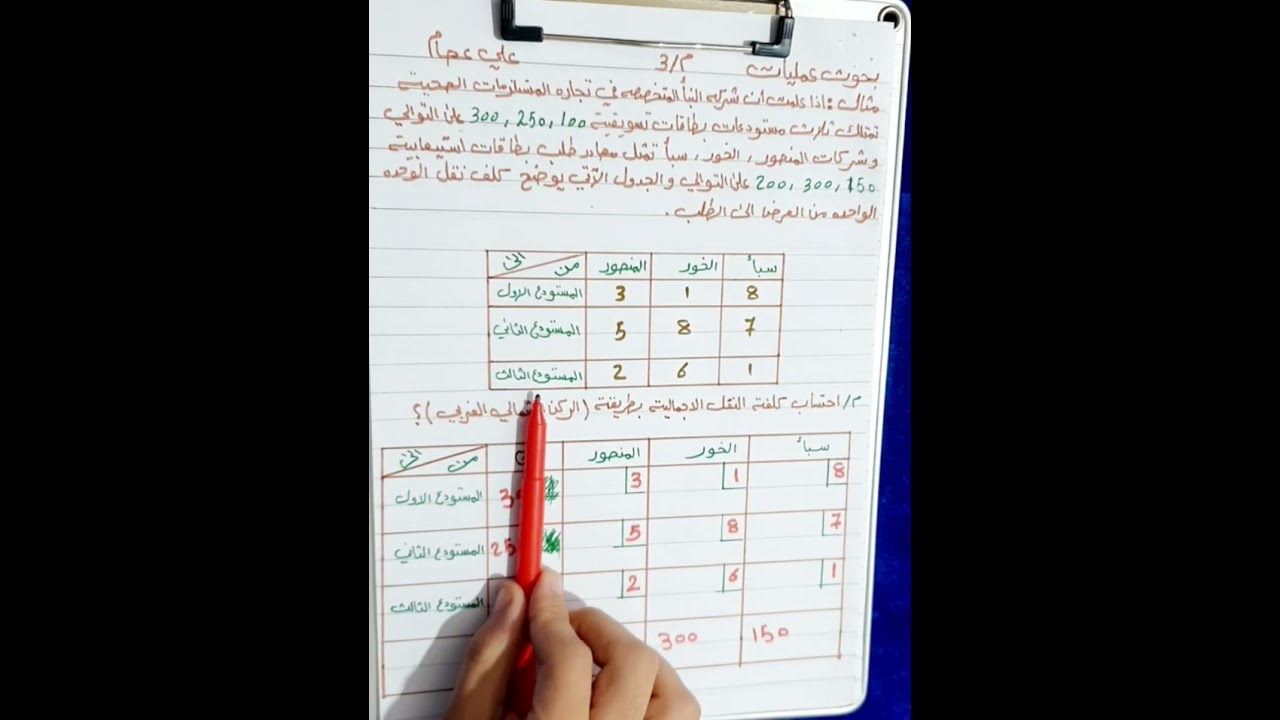 بحوث عمليات م/3 علي عصام
مثال : اذا علمت ان شركه النبأ المتخصصه في تجاره المستلزمات الصحية
تمتلك ثلاث مستودعات بطاقات تسويقية 300 , 250 , 100 على التوالي
وشركات المنصور , الخور , سبأ تمثل مصادر طلب بطاقات استيعابية
200 , 300 , 150 على التوالي والجدول الآتي يوضح كلف نقل الوحده
الواحده من العرض الى الطلب .
من الى المنصور الخور سبأ
المستودع الاول 3 1 8
المستودع الثاني 5 8 7
المستودع الثالث 2 6 1
م/ احتساب كلفة النقل الاجمالية بطريقة (الركن الغربي)؟
من الى المنصور الخور سبأ
المستودع الاول 3 1 8
المستودع الثاني 25 5 8 7
المستودع الثالث 2 6 1
300 150